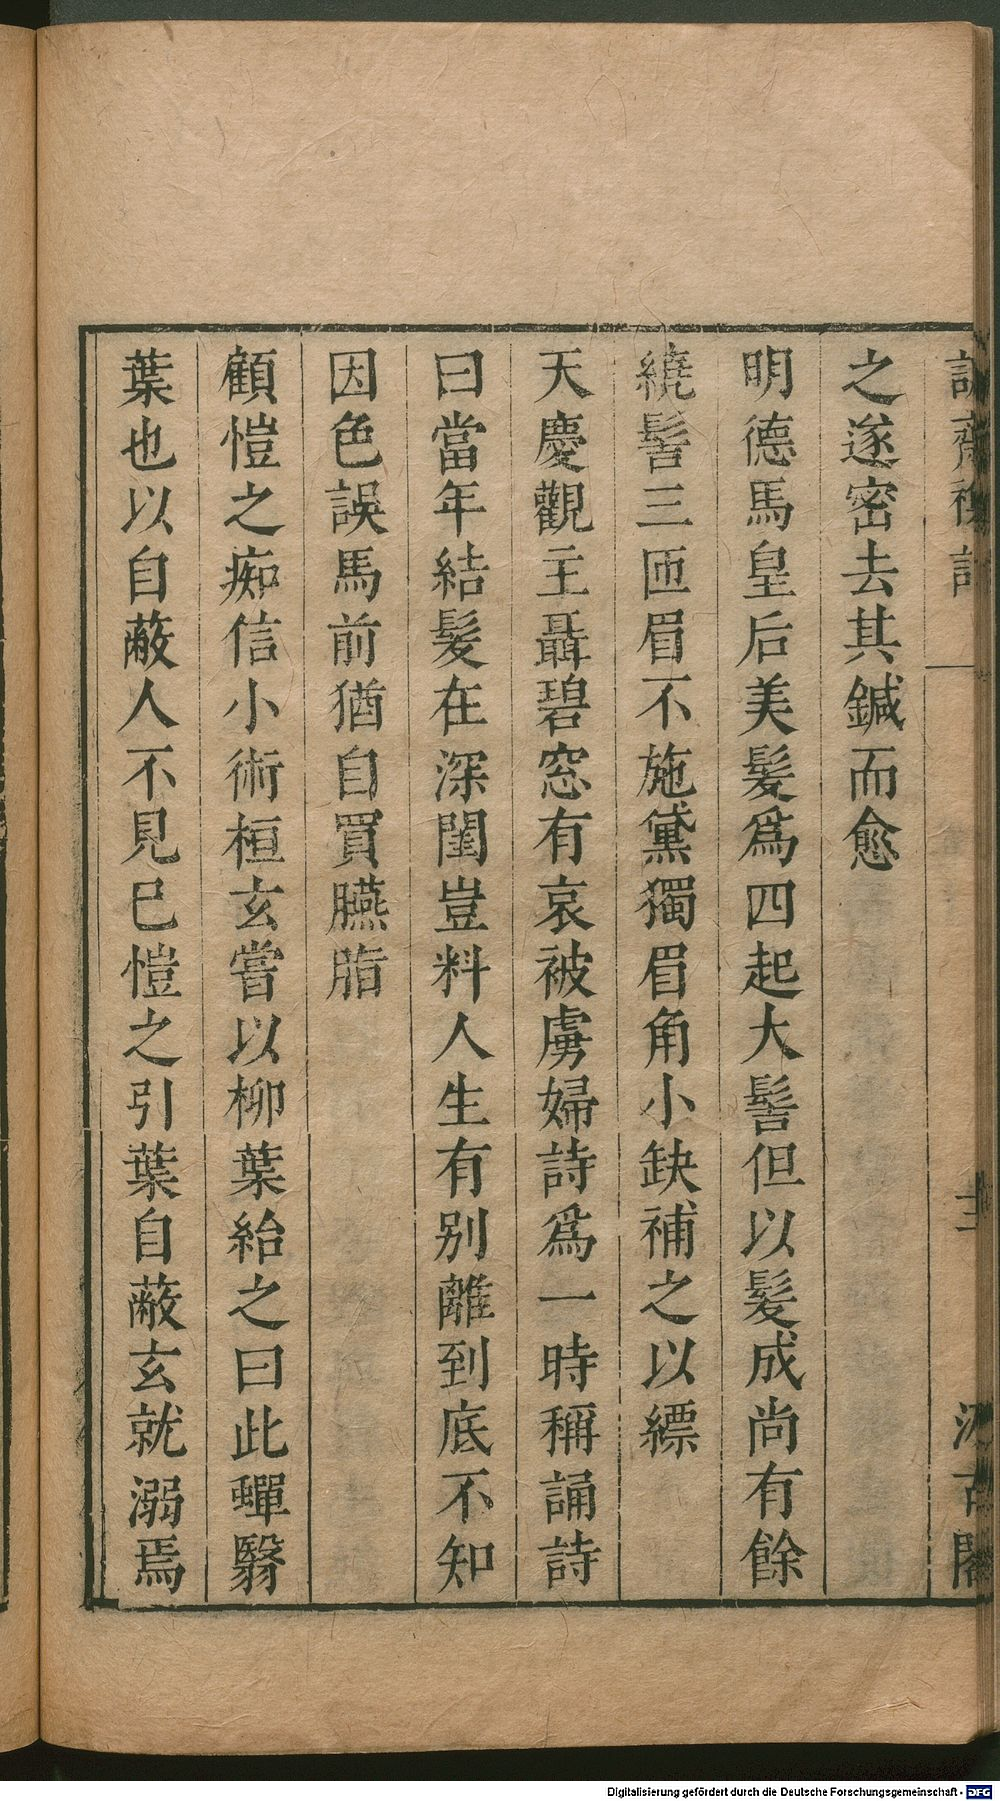 之遂密去其鍼而愈
明德馬皇后美髮爲四起大髻但以髮成尚有餘
繞髻三匝眉不施黛獨眉角小缺補之以縹
天慶觀主聶碧窓有哀被虜婦詩爲一時稱誦詩
曰當年結髮在深閨豈料人生有别離到底不知
因色誤馬前猶自買臙脂
顧愷之痴信小術桓玄嘗以柳葉紿之曰此蟬翳
葉也以自蔽人不見已愷之引葉自蔽玄就溺焉
Digitalisierung gefördert durch die Deutsche Forschungsgemeinschaft - DFG